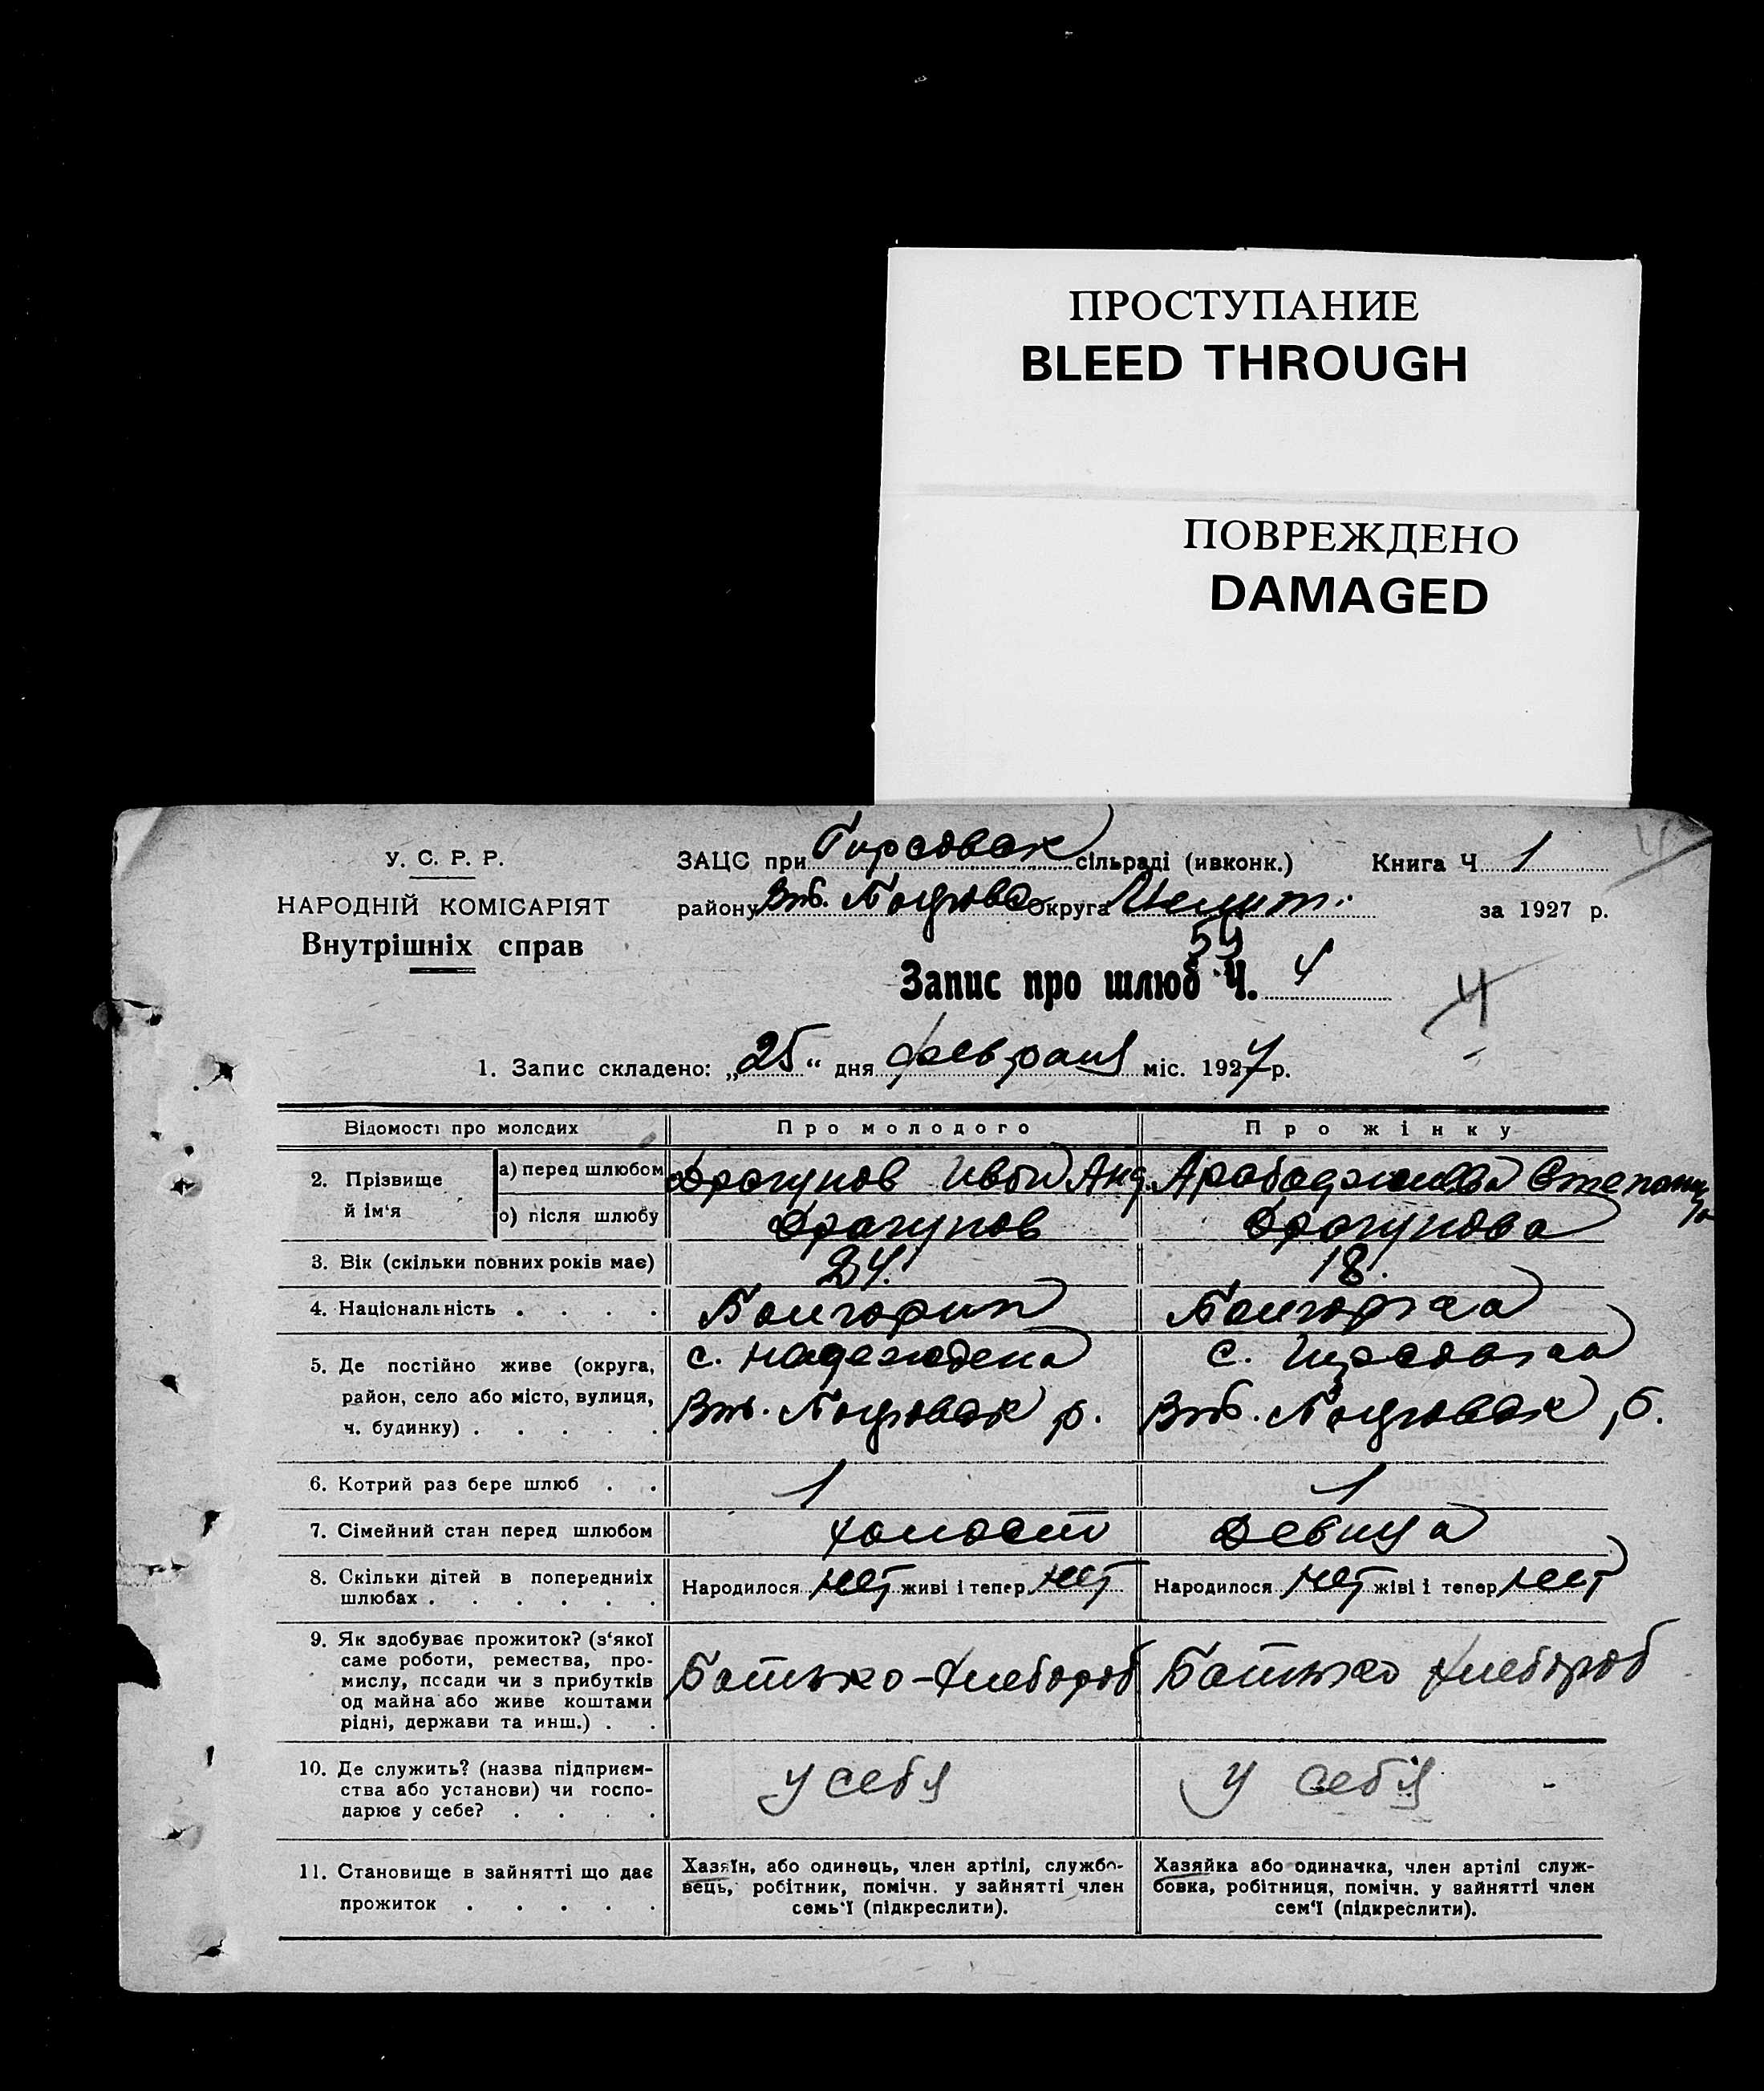 ПРОСТУПАНИЕ
BLEED THROUGH
ПОВРЕЖДЕНО
DAMAGED
У. С. Р. Р.
НАРОДНІЙ КОМІСАРІЯТ
Внутрішніх справ
ЗАЦС при Гирсовск сільраді (ивконк.) Книга Ч 1
району округа Мелит. за 1927 р.
54
Запис про шлюб Ч. 4
4
1. Запис складено: „25“ дня февраля міс. 1927 р.
Відомості про молодих Про молодого Про жінку
2. Прізвище й ім‘я
а) перед шлюбом Драгунов Иван Анд. Арабаджиева
о) після шлюбу Драгунов Драгунова
3. Вік (скільки повних років має) 24. 18.
4. Національність . . . . Болгарин Болгарка
5. Де постійно живе (округа, с. Надеждена с. Гирсовка
район, село або місто, вулиця, р.
ч. будинку) . . . . .
6. Котрий раз бере шлюб . . 1 1
7. Сімейний стан перед шлюбом холост Девица
8. Скільки дітей в попередниіх Народилося нет живі і тепер нет Народилося нет жіві і тепер нет
шлюбах . . . . . .
9. Як здобуває прожиток? (з‘якої
саме роботи, ремества, про-
мислу, посади чи з прибутків Батько-хлебороб Батько хлебороб
од майна або живе коштами
рідні, держави та инш.) . .
10. Де служить? (назва підприєм-
ства або установи) чи госпо- у себя у себя
дарює у себе? . . . .
11. Становище в зайнятті що дає
прожиток . . . . .
Хазяїн, або одинець, член артілі, службо-
вець, робітник, помічн. у зайнятті член
семь‘ї (підкреслити).
Хазяйка або одиначка, член артілі служ-
бовка, робітниця, помічн. у зайнятті член
сем‘ї (підкреслити).